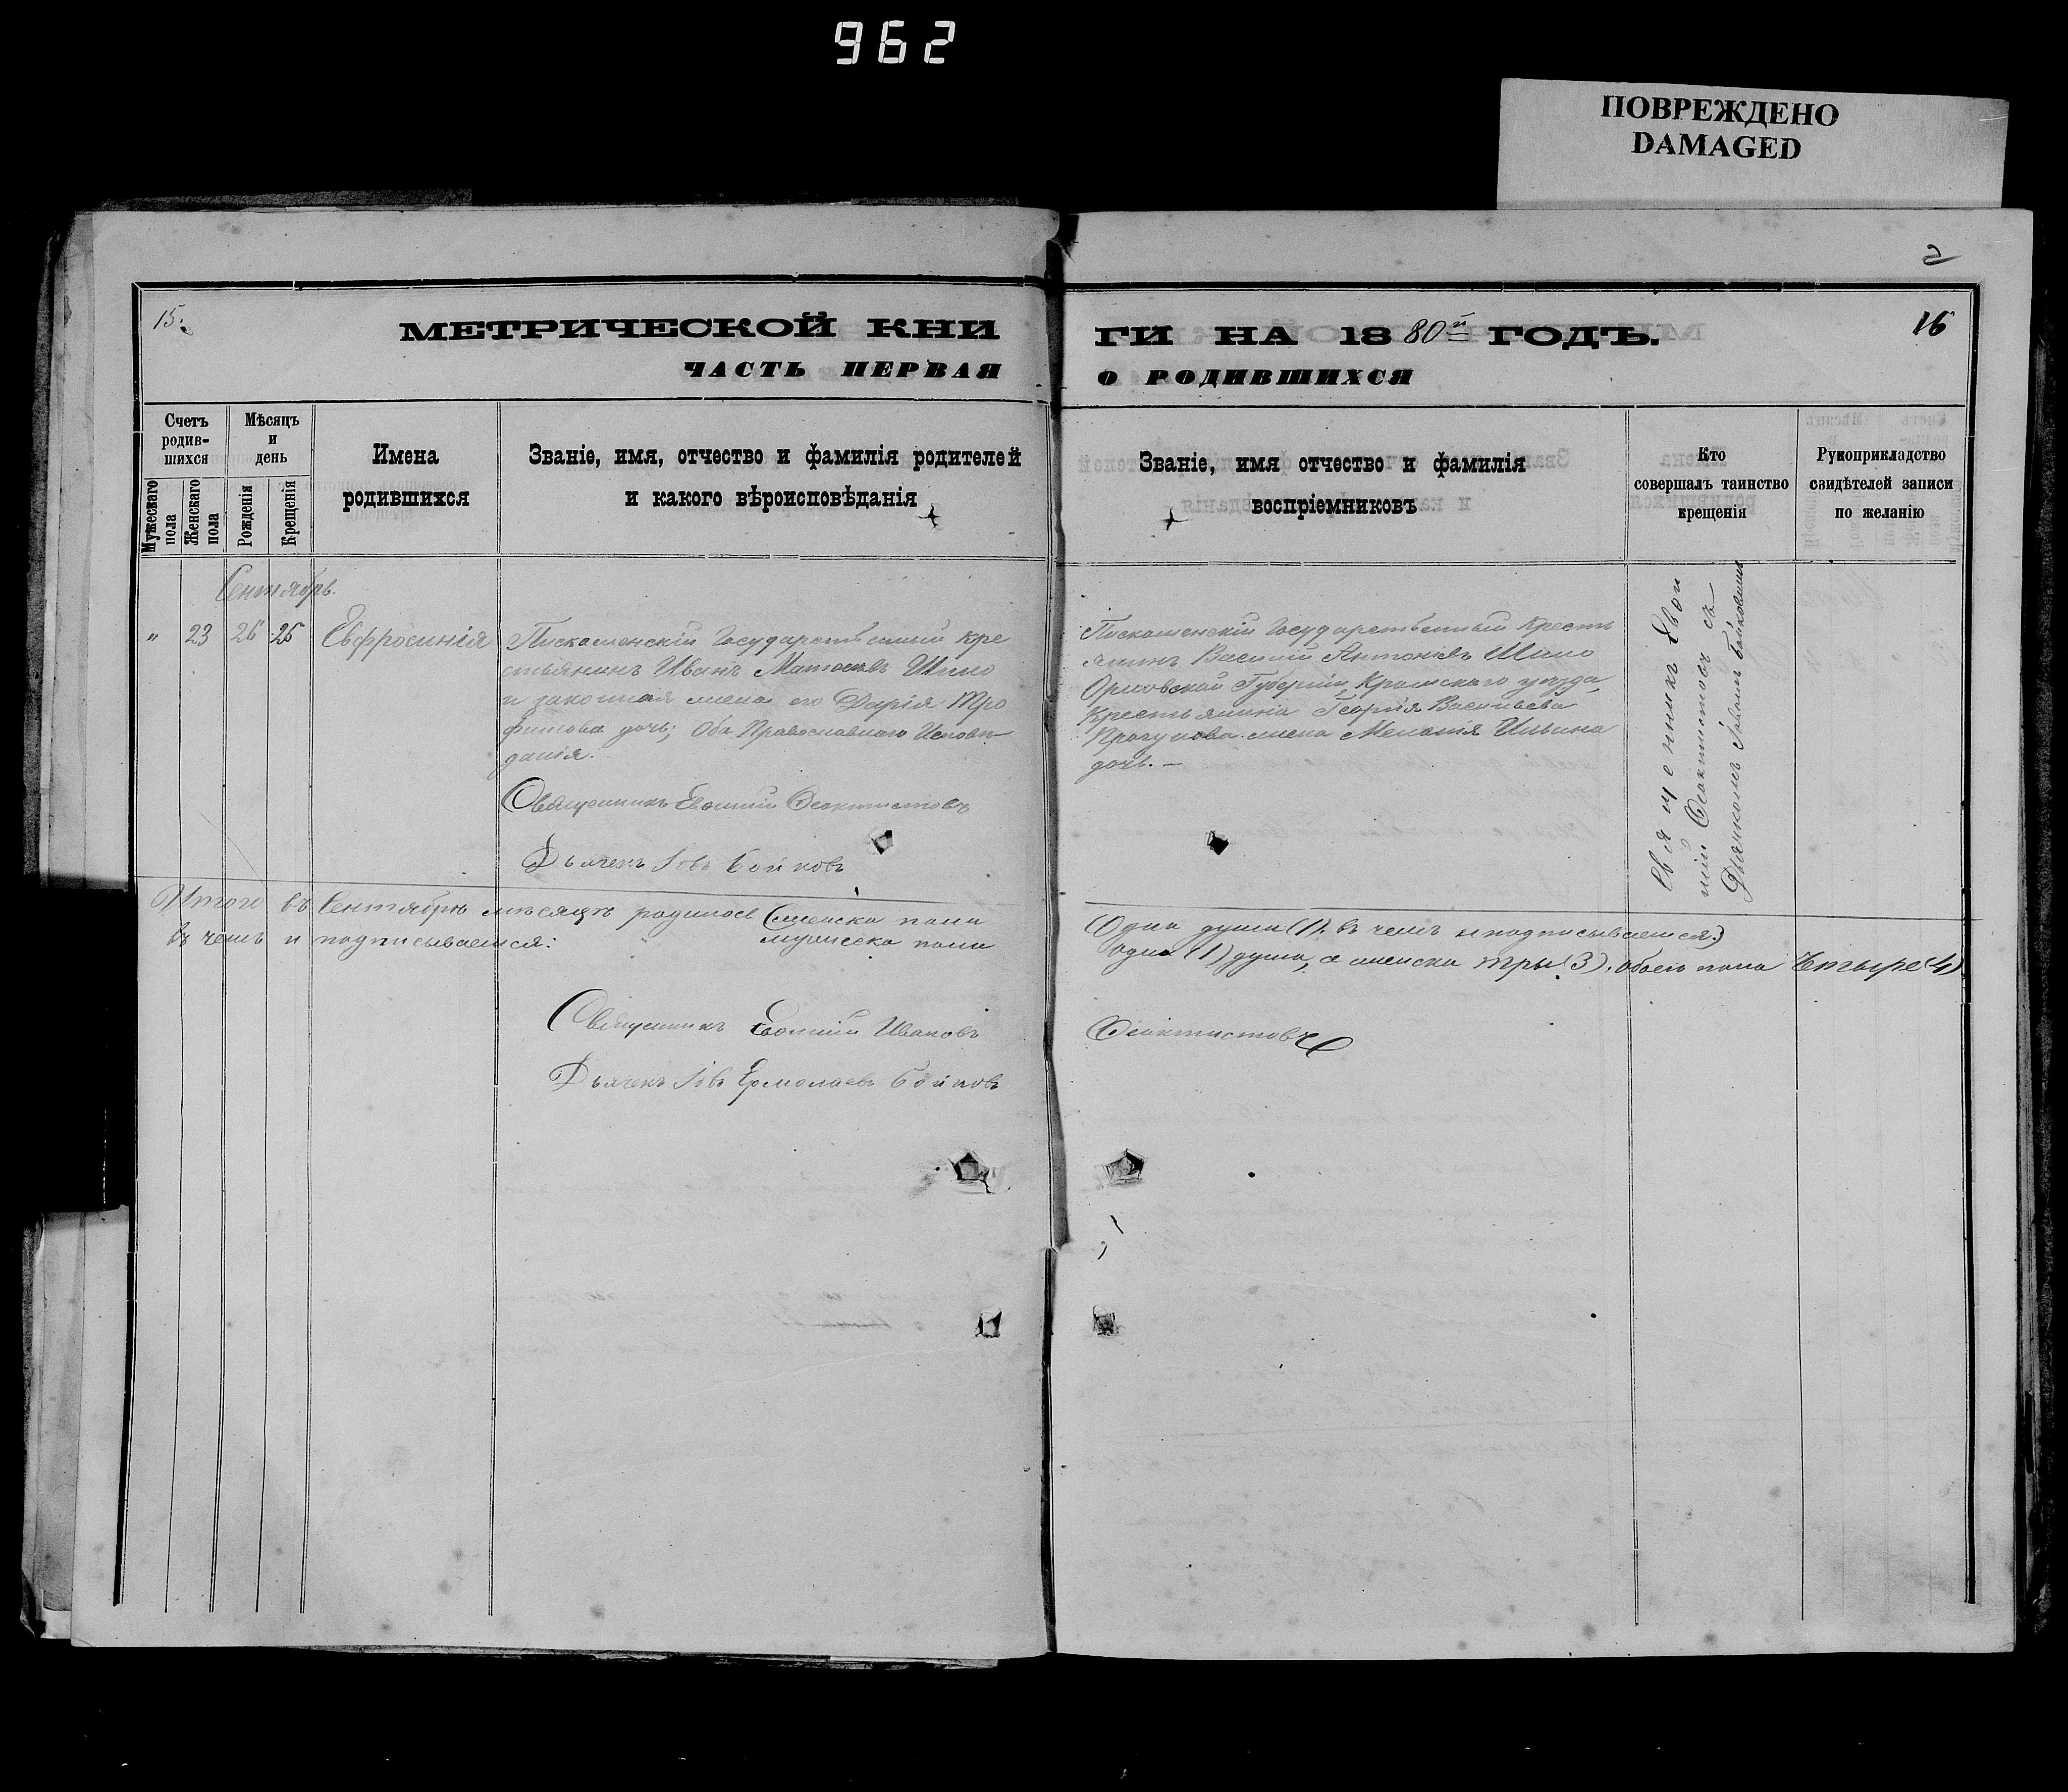 962
ПОВРЕЖДЕНО
DAMAGED
2
15.
МЕТРИЧЕСКОЙ КНИ
ГИ НА 1880й ГОДЪ.
16
ЧАСТЬ ПЕРВАЯ
О РОДИВШИХСЯ
Счетъ
родив-
шихся
Мужескаго
пола
Женскаго
пола
Мѣсяцъ
и
день
Рожденія
Крещенія
Имена
родившихся
Званіе, имя, отчество и фамилія родителей
и какого вѣроисповѣданія
Званіе, имя отчество и фамилія
воспріемниковъ
Кто
совершалъ таинство
крещенія
Рукоприкладство
свидѣтелей записи
по желанію
Сентябрь.
" 23 26 26 Евфросинія
Государственный кре
стьянинъ Иванъ Шило
и законная жена его Дарія Тро
фимова дочь; Оба Православнаго Исповѣ
данія.
Священникъ Евфимій Феоктистовъ
Дьячекъ Іовъ Бойковъ
Государственный Кресть
янинъ Василій Антоніевъ Шило
Орловской Губерніи, Кромскаго уѣзда,
Крестьянина Георгія Васильева
жена Меланія Ильина
дочь. —
Священникъ Евфи
мій Феоктистовъ съ
Дьячкомъ Іовомъ Бойковымъ
Итого въ Сентябрѣ мѣсяцѣ родилось женска пола
въ чемъ и подписываемся: мужеска пола
Одна душа (1). въ чемъ и подписываемся:)
одна (1) душа, а женска три (3). обоего пола Четыре (4)
Священникъ Евфимій Ивановъ
Феоктистовъ
Дьячекъ Іовъ Ермолаевъ Бойковъ